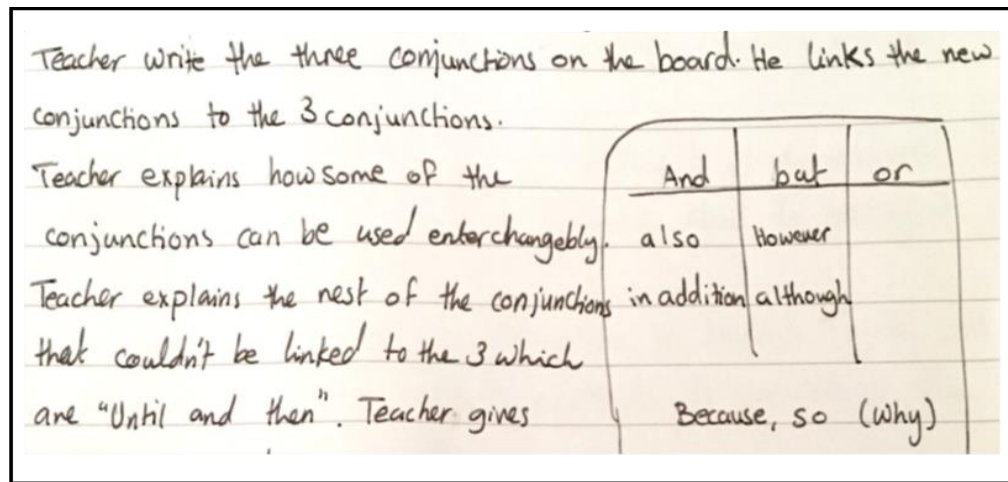 Teacher write the three conjunctions on the board. He links the new
conjunctions to the 3 conjunctions.
Teacher explains how some of the
conjunctions can be used enterchangebly.
Teacher explains the rest of the conjunctions
that couldn't be linked to the 3 which
are "Until and then". Teacher gives
And but or
also However
in addition although
Because, so (why)